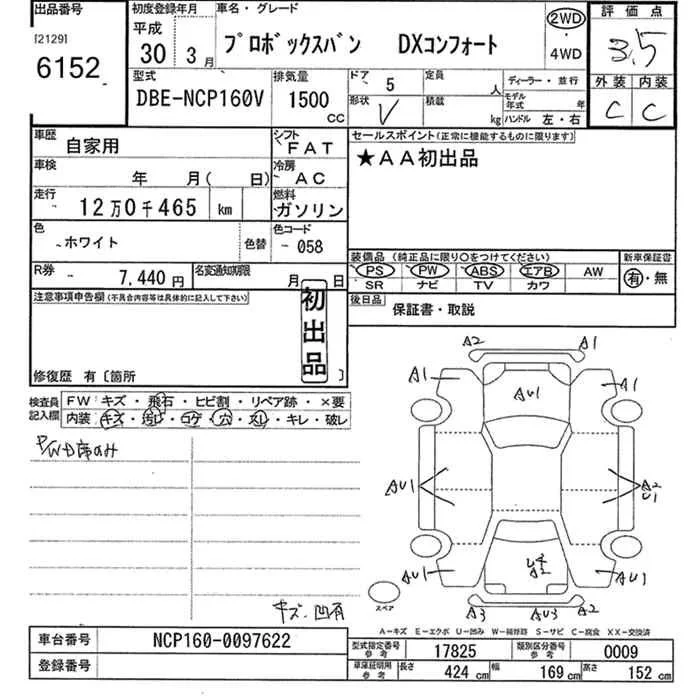 出品番号 初度登録年月 車名・グレード 評価点
[2129] 平成 2WD
6152 30年 3月 プロボックスバン DXコンフォート 4WD 3.5
型式 排気量 ドア 5 定員 人 ディーラー・並行 外装 内装
DBE-NCP160V 1500 CC 形状 V 積載 kg モデル年式 年 ハンドル 左・右 C C
車歴 自家用 シフト FAT セールスポイント(正常に機能するものに限ります)
車検 年 月( 日) 冷房 AC ★AA初出品
走行 12万0千465 km 燃料 ガソリン
色 ホワイト 色替 色コード - 058
装備品(純正品に限り○をつけてください) 新車保証書
R券 7,440円 名変通知期限 月 日 PS PW ABS エアB AW 有・無
SR ナビ TV カワ
注意事項申告欄(不具合内容等は具体的に記入して下さい) 初出品 後日品 保証書・取説
修復歴 有〔箇所 〕
検査員記入欄 FW キズ・飛石・ヒビ割・リペア跡・×要
内装 キズ・汚レ・コゲ・穴・スレ・キレ・破レ
P/WD席のみ
A2 A1
A1 AU1 A1
AU1 A2 U1
AU1 A2 AU1
スペア A3 AU3 A2
キズ・凹有
A-キズ E-エクボ U-凹み W-補修跡 S-サビ C-腐食 XX-交換済
車台番号 NCP160-0097622 型式指定番号 参考 17825 類別区分番号 参考 0009
登録番号 車庫証明用 参考 長さ 424 cm 幅 169 cm 高さ 152 cm